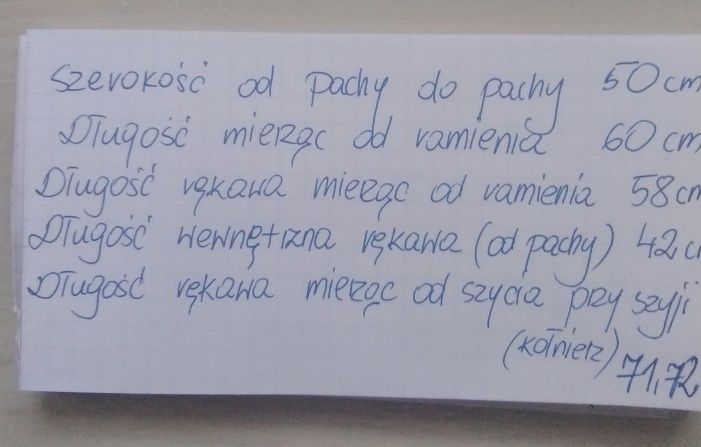 Szerokość od pachy do pachy 50 cm
Długość mierząc od ramienia 60 cm
Długość rękawa mierząc od ramienia 58 cm
Długość wewnętrzna rękawa (od pachy) 42 c
Długość rękawa mierząc od szycia przy szyji
(kołnierz)
71,72